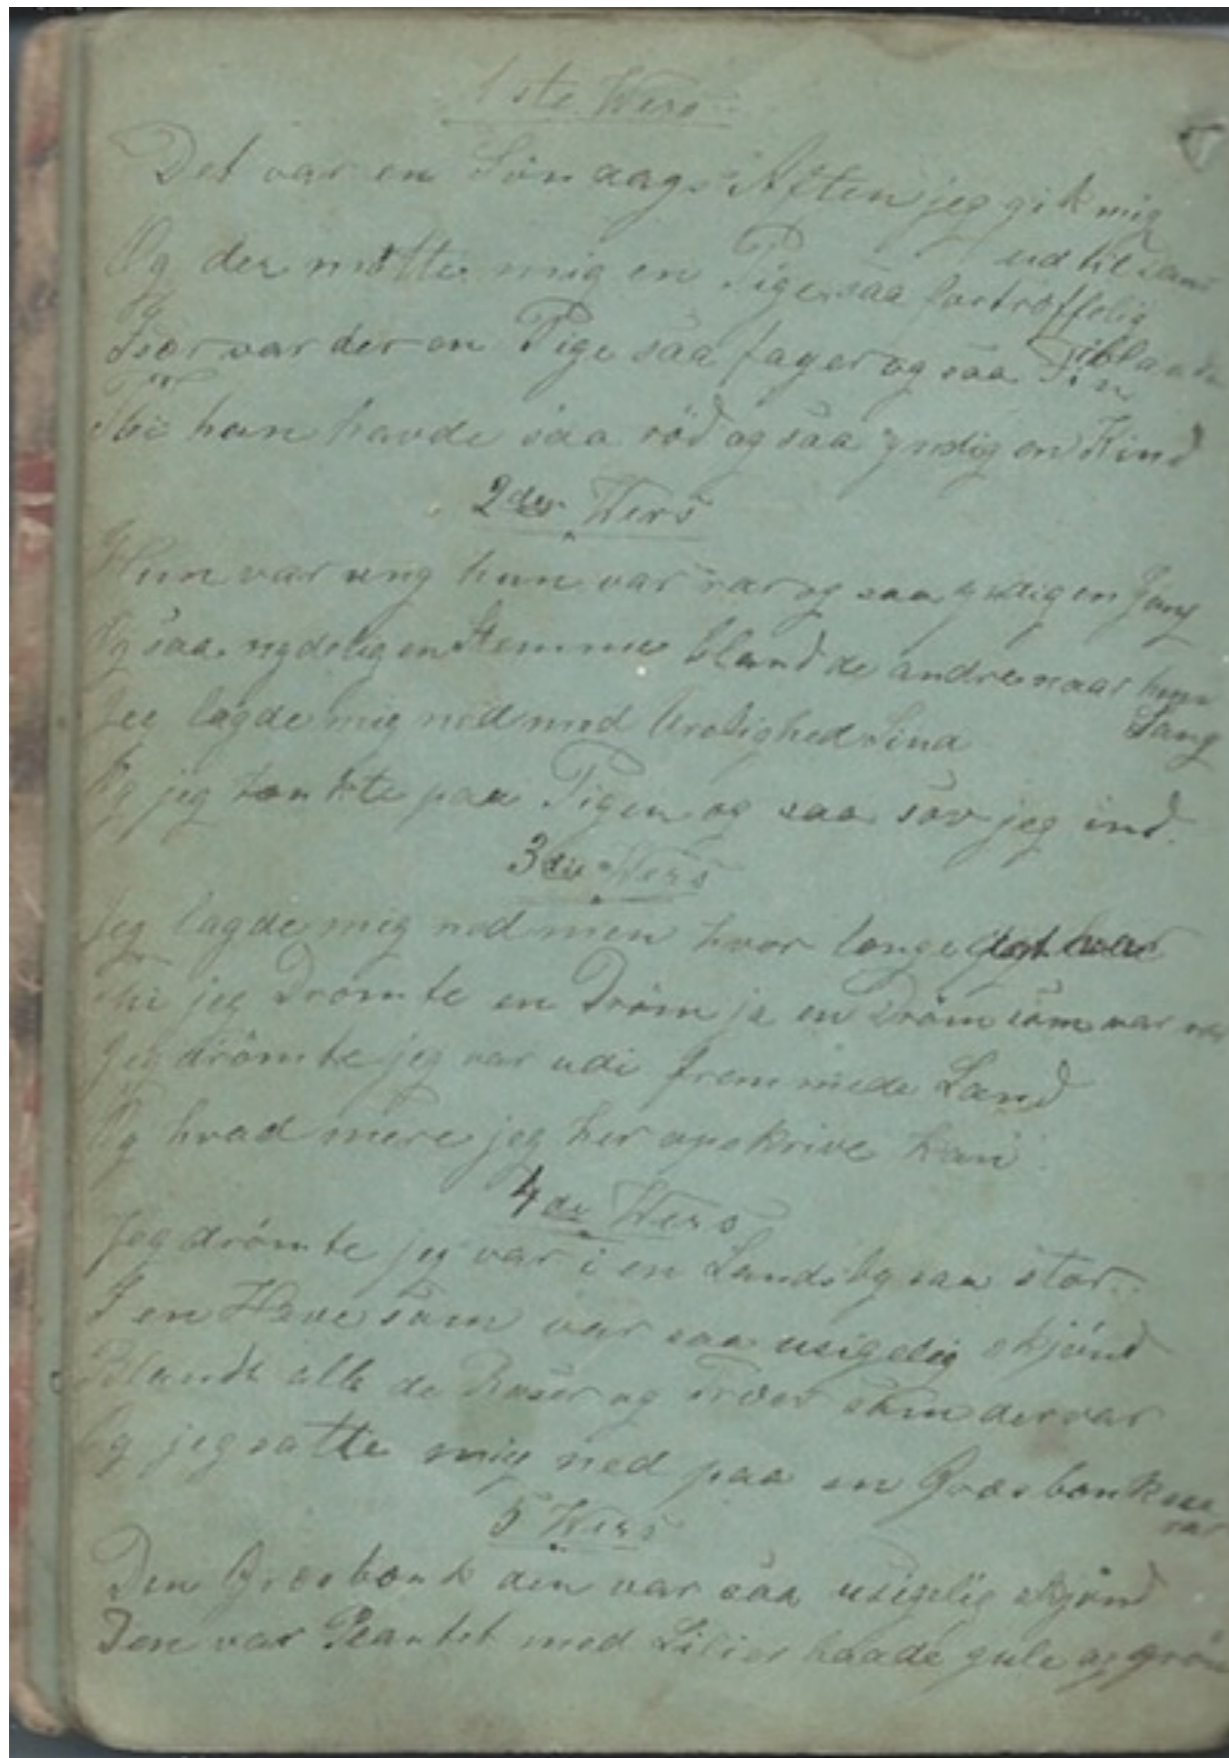 1ste Wers
Det var en Söndags Aften jeg gik mig
ud til Dans
Og der mötte mig en Pige saa fortroffelig
iblandt
Især var der en Pige saa fager og saa Fin
Thi hun havde saa röd og saa yndig en Kind
2der Wers
Hun var ung hun var rar og saa yndig en Gang
Og saa nydelig en Stemme bland de andre naar hun
Sang
Jeg lagde mig ned med
Og jeg tænkte paa Pigen og saa sov jeg ind.
3die Wers
Jeg lagde mig ned men hvor længe det var
Thi jeg Drömte en Dröm ja en Dröm som var rar
Jeg drömte jeg var udi fremmede Land
Og hvad mere jeg her opskrive kan
4de Wers
Jeg drömte jeg var i en Landsby saa stor
I en Have som var saa usigelig skjönd
Blandt alle de Roser og Træer som der var
Og jeg satte mig ned paa en Græsbænk saa
rar
5 Wers
Den Græsbænk den var saa usigelig skjönd
Den var Plantet med Lilier baade gule og grön